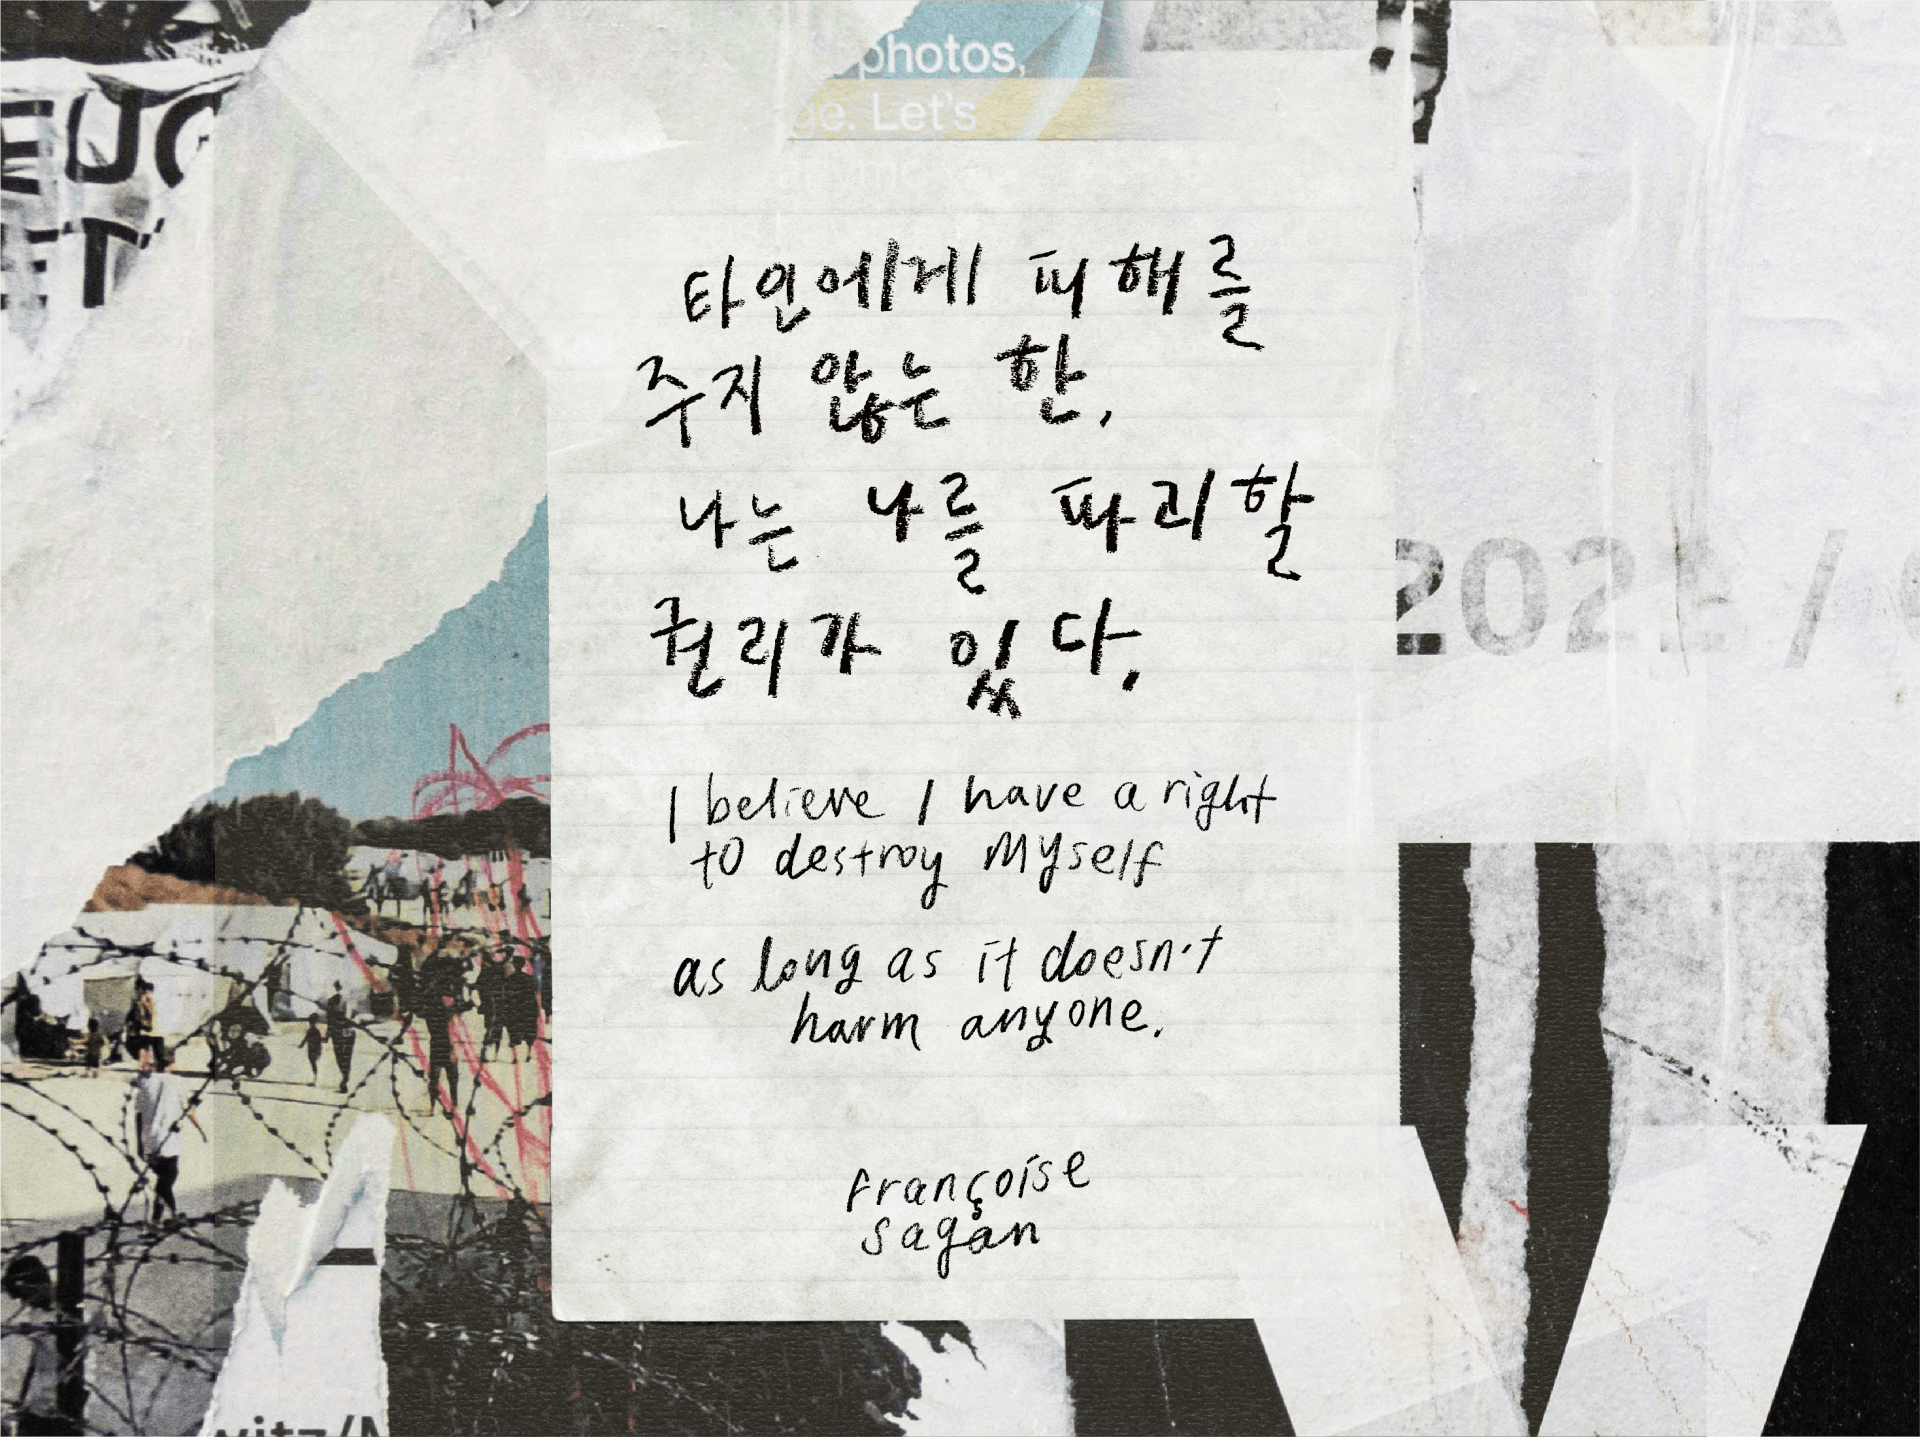 photos,
ge. Let's
타인에게 피해를
주지 않는 한,
나는 나를 파괴할
권리가 있다.
I believe I have a right
to destroy Myself
as long as it doesn't
harm anyone.
françoise
sagan